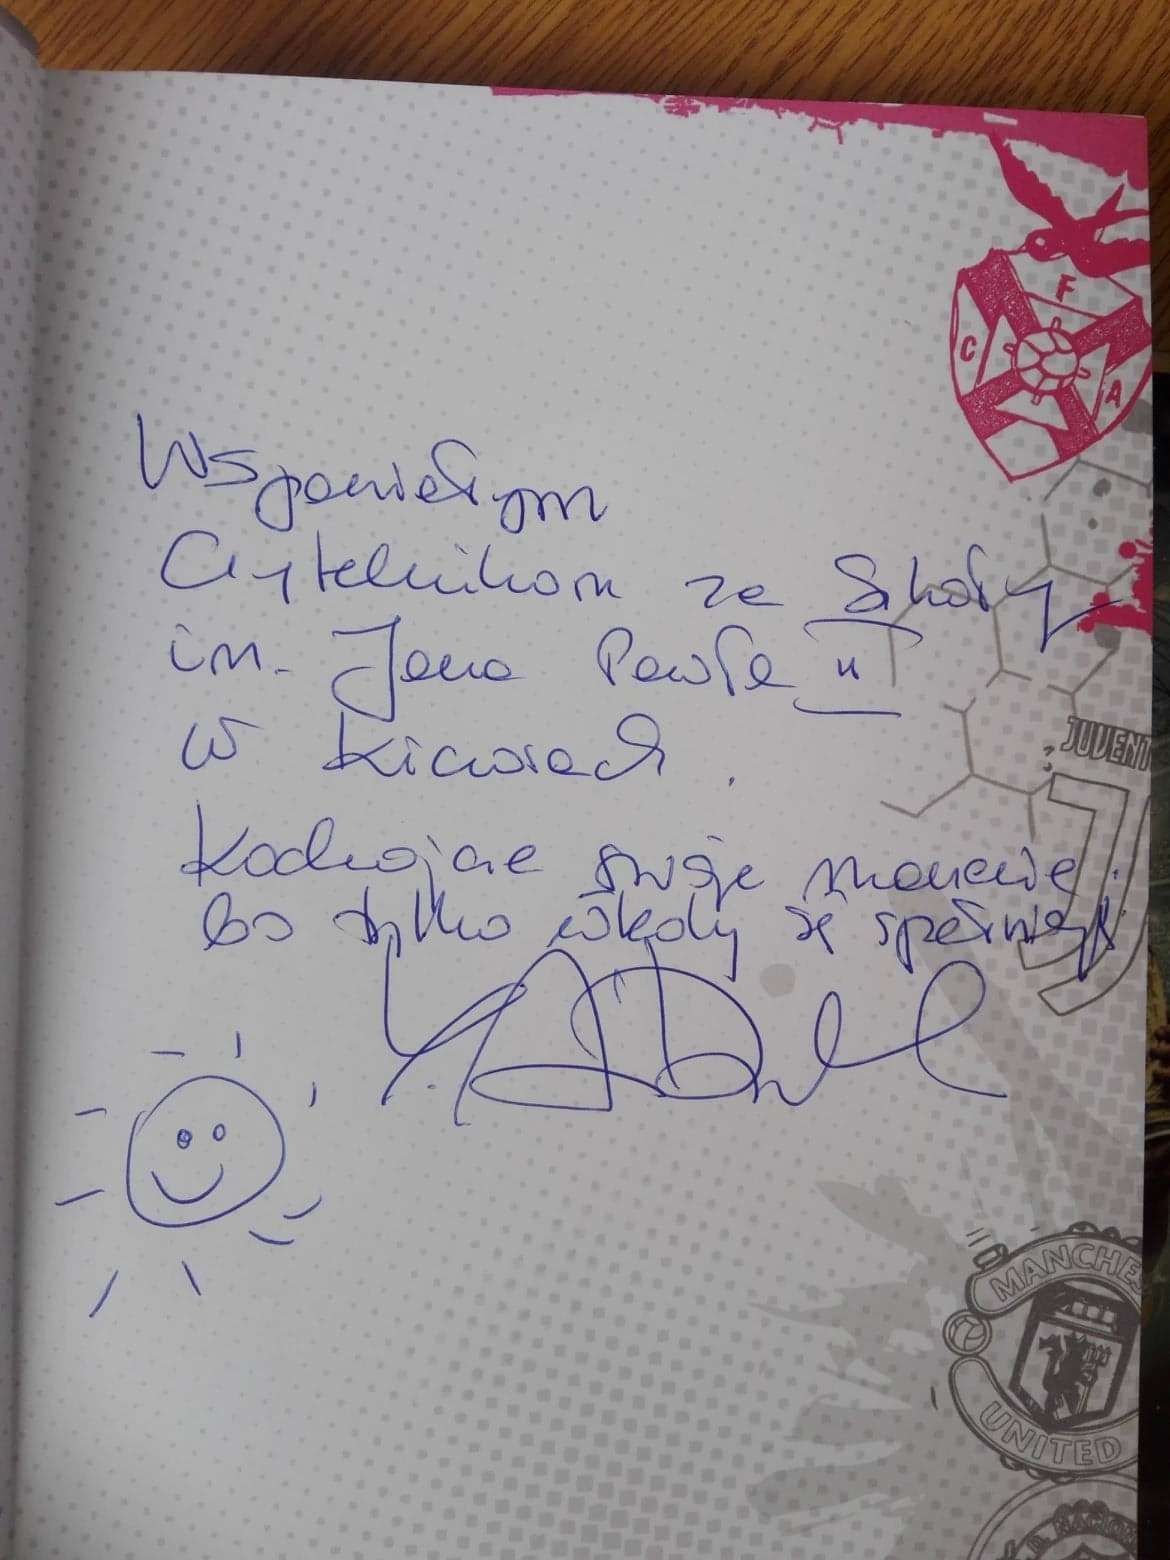 F
C A
Wspaniałym
Czytelnikom ze Szkoły
im. Jana Pawła II
w
JUVENT
Kochajcie swoje marzenie.
bo tylko wtedy się spełnią
MANCHE
UNITED